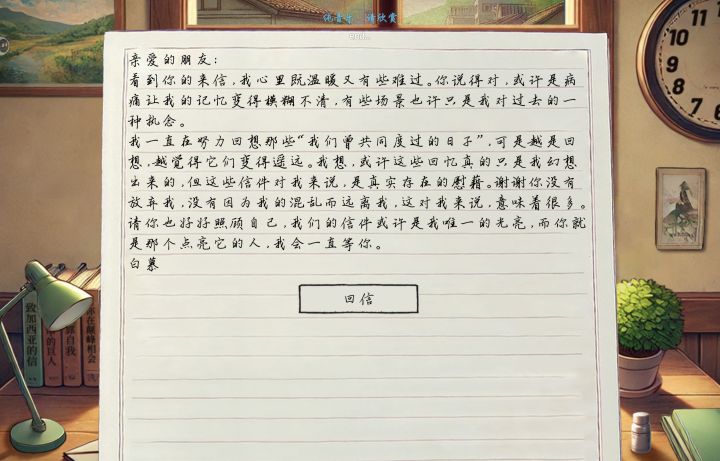 纯音乐，请欣赏
end...
亲爱的朋友：
看到你的来信，我心里既温暖又有些难过。你说得对，或许是病
痛让我的记忆变得模糊不清，有些场景也许只是我对过去的一
种执念。
我一直在努力回想那些“我们曾共同度过的日子”，可是越是回
想，越觉得它们变得遥远。我想，或许这些回忆真的只是我幻想
出来的，但这些信件对我来说，是真实存在的慰藉。谢谢你没有
放弃我，没有因为我的混乱而远离我，这对我来说，意味着很多。
请你也好好照顾自己，我们的信件或许是我唯一的光亮，而你就
是那个点亮它的人，我会一直等你。
白慕
回信
致加西亚的信
的巨人
你自我
你在巅峰相会
10
11
12
9
8
7
6